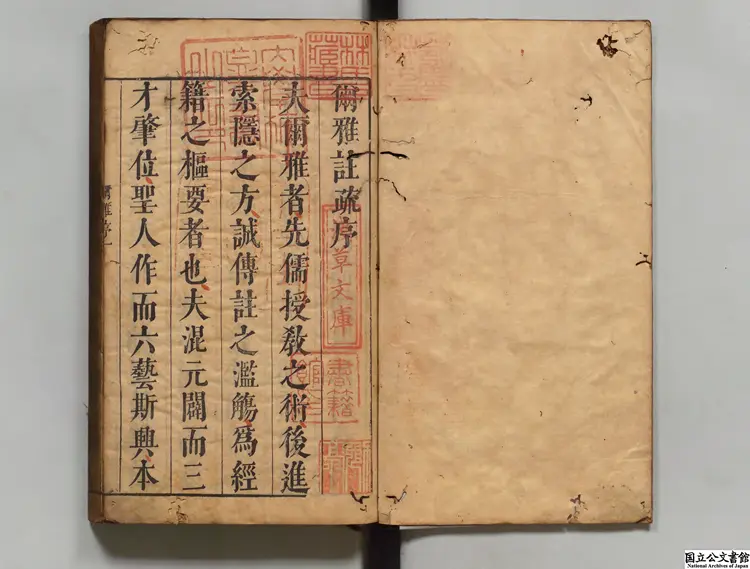 爾雅註疏序
夫爾雅者先儒授教之術後進
索隱之方誠傳註之濫觴爲經
籍之樞要者也夫混元闢而三
才肇位聖人作而六藝斯興本
爾雅序
一
草文庫
書籍
国立公文書館
National Archives of Japan